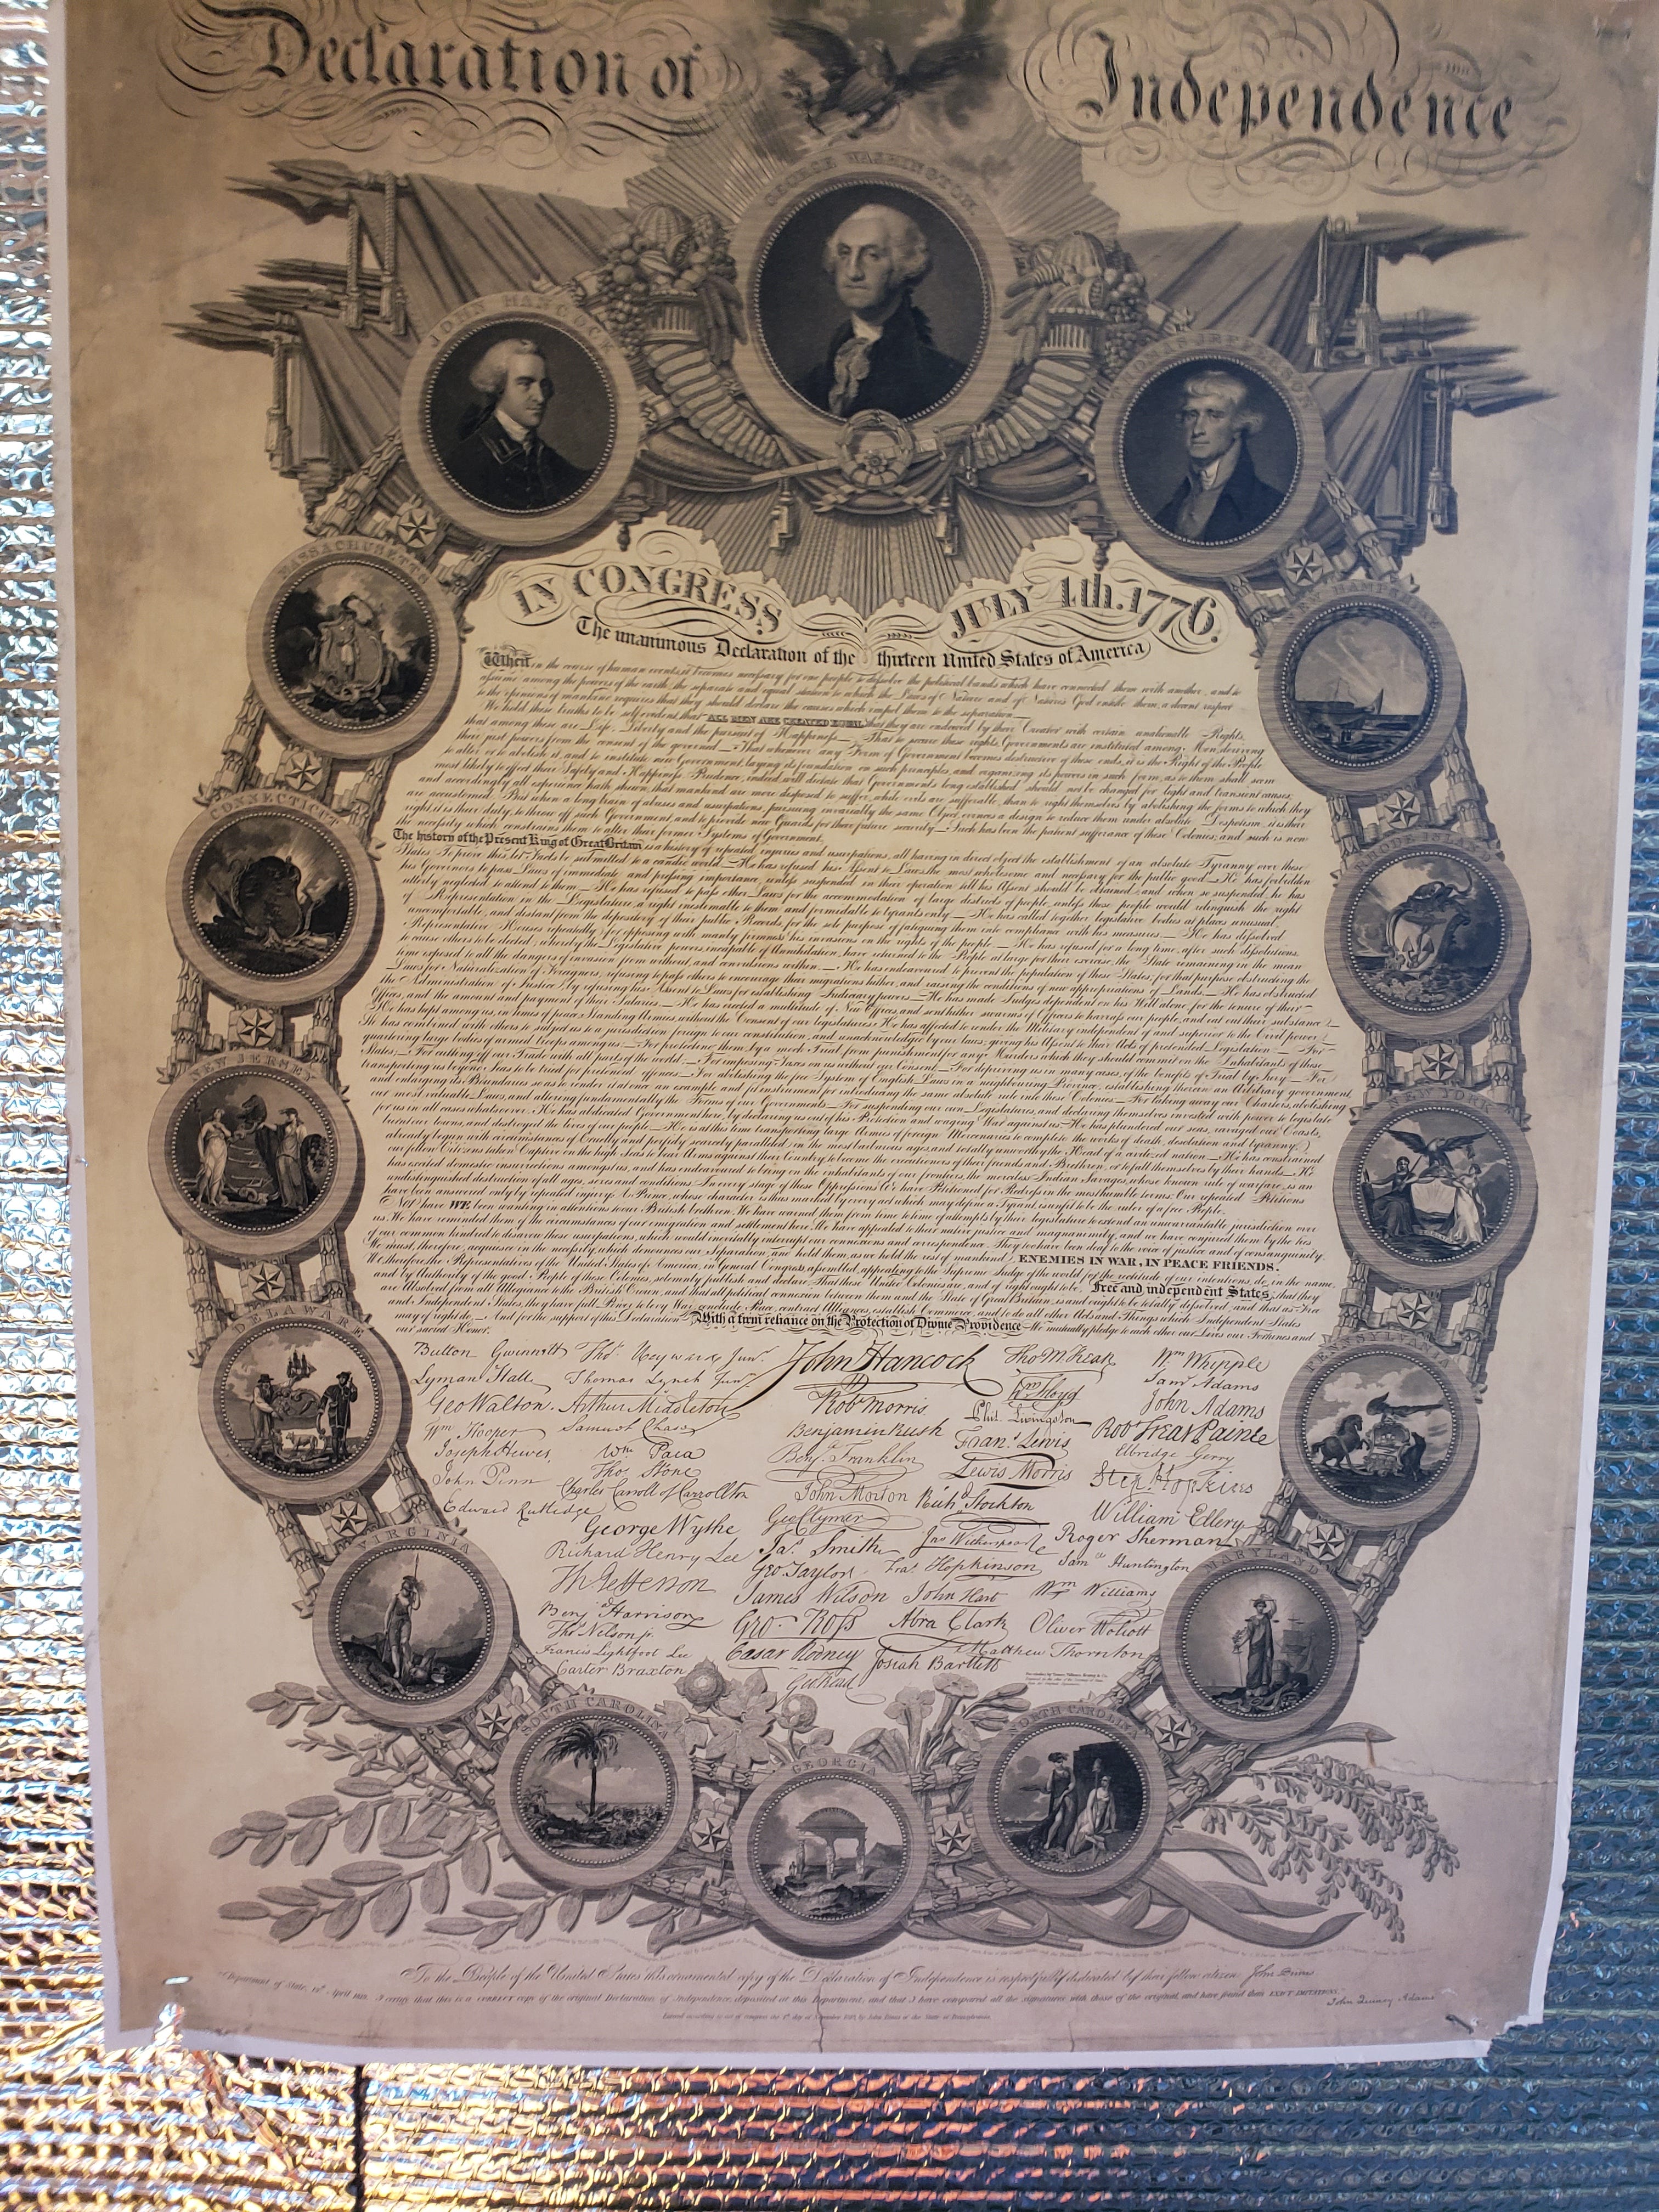 Declaration of Independence
GEORGE WASHINGTON.
JOHN HANCOCK
THOMAS JEFFERSON
MASSACHUSETTS
CONNECTICUT
RHODE
NEW JERSEY
NEW YORK
DELAWARE
PENNSYLVANIA
VIRGINIA
MARYLAND
SOUTH CAROLINA
NORTH CAROLINA
GEORGIA
IN CONGRESS JULY 4th. 1776.
The unanimous Declaration of the thirteen United States of America
When, in the course of human events, it becomes necessary for one people to dissolve the political bands which have connected them with another, and to
assume among the powers of the earth, the separate and equal station to which the Laws of Nature and of Nature's God entitle them, a decent respect
to the opinions of mankind requires that they should declare the causes which impel them to the separation.
We hold these truths to be self-evident, that ALL MEN ARE CREATED EQUAL, that they are endowed by their Creator with certain unalienable Rights,
that among these are Life, Liberty and the pursuit of Happiness.— That to secure these rights, Governments are instituted among Men, deriving
their just powers from the consent of the governed.— That whenever any Form of Government becomes destructive of these ends, it is the Right of the People
to alter or to abolish it, and to institute new Government, laying its foundation on such principles, and organizing its powers in such form, as to them shall seem
most likely to effect their Safety and Happiness. Prudence, indeed, will dictate that Governments long established should not be changed for light and transient causes;
and accordingly all experience hath shewn, that mankind are more disposed to suffer, while evils are sufferable, than to right themselves by abolishing the forms to which they
are accustomed. But when a long train of abuses and usurpations, pursuing invariably the same Object, evinces a design to reduce them under absolute Despotism, it is their
right, it is their duty, to throw off such Government, and to provide new Guards for their future security.— Such has been the patient sufferance of these Colonies; and such is now
the necessity which constrains them to alter their former Systems of Government.
The history of the Present King of Great Britain is a history of repeated injuries and usurpations, all having in direct object the establishment of an absolute Tyranny over these
States. To prove this, let Facts be submitted to a candid world.— He has refused his Assent to Laws, the most wholesome and necessary for the public good.— He has forbidden
his Governors to pass Laws of immediate and pressing importance, unless suspended in their operation till his Assent should be obtained; and when so suspended, he has
utterly neglected to attend to them.— He has refused to pass other Laws for the accommodation of large districts of people, unless those people would relinquish the right
of Representation in the Legislature, a right inestimable to them, and formidable to tyrants only.— He has called together legislative bodies at places unusual,
uncomfortable, and distant from the depository of their public Records, for the sole purpose of fatiguing them into compliance with his measures.— He has dissolved
Representative Houses repeatedly, for opposing with manly firmness his invasions on the rights of the people.— He has refused for a long time, after such dissolutions,
to cause others to be elected; whereby the Legislative powers, incapable of Annihilation, have returned to the People at large for their exercise; the State remaining in the mean
time exposed to all the dangers of invasion from without, and convulsions within.— He has endeavoured to prevent the population of these States; for that purpose obstructing the
Laws for Naturalization of Foreigners; refusing to pass others to encourage their migrations hither, and raising the conditions of new appropriations of Lands.— He has obstructed
the Administration of Justice, by refusing his Assent to Laws for establishing Judiciary powers.— He has made Judges dependent on his Will alone, for the tenure of their
Offices, and the amount and payment of their Salaries.— He has erected a multitude of New Offices, and sent hither swarms of Officers to harrass our people, and eat out their substance.—
He has kept among us, in times of peace, Standing Armies, without the Consent of our legislatures.— He has affected to render the Military independent of and superior to the Civil power.—
He has combined with others to subject us to a jurisdiction foreign to our constitution, and unacknowledged by our laws; giving his Assent to their Acts of pretended Legislation:— For
quartering large bodies of armed troops among us:— For protecting them, by a mock Trial, from punishment for any Murders which they should commit on the Inhabitants of these
States:— For cutting off our Trade with all parts of the world:— For imposing Taxes on us without our Consent:— For depriving us in many cases, of the benefits of Trial by Jury:— For
transporting us beyond Seas to be tried for pretended offences:— For abolishing the free System of English Laws in a neighbouring Province, establishing therein an Arbitrary government,
and enlarging its Boundaries so as to render it at once an example and fit instrument for introducing the same absolute rule into these Colonies:— For taking away our Charters, abolishing
our most valuable Laws, and altering fundamentally the Forms of our Governments:— For suspending our own Legislatures, and declaring themselves invested with power to legislate
for us in all cases whatsoever. He has abdicated Government here, by declaring us out of his Protection and waging War against us.— He has plundered our seas, ravaged our Coasts,
burnt our towns, and destroyed the lives of our people.— He is at this time transporting large Armies of foreign Mercenaries to compleat the works of death, desolation and tyranny,
already begun with circumstances of Cruelty and perfidy scarcely paralleled in the most barbarous ages, and totally unworthy the Head of a civilized nation.— He has constrained
our fellow Citizens taken Captive on the high Seas to bear Arms against their Country, to become the executioners of their friends and Brethren, or to fall themselves by their hands.— He
has excited domestic insurrections amongst us, and has endeavoured to bring on the inhabitants of our frontiers, the merciless Indian Savages, whose known rule of warfare, is an
undistinguished destruction of all ages, sexes and conditions. In every stage of these Oppressions We have Petitioned for Redress in the most humble terms: Our repeated Petitions
have been answered only by repeated injury. A Prince, whose character is thus marked by every act which may define a Tyrant, is unfit to be the ruler of a free People.
Nor have WE been wanting in attentions to our British brethren. We have warned them from time to time of attempts by their legislature to extend an unwarrantable jurisdiction over
us. We have reminded them of the circumstances of our emigration and settlement here. We have appealed to their native justice and magnanimity, and we have conjured them by the ties
of our common kindred to disavow these usurpations, which would inevitably interrupt our connexions and correspondence. They too have been deaf to the voice of justice and of consanguinity.
We must, therefore, acquiesce in the necessity, which denounces our Separation, and hold them, as we hold the rest of mankind, ENEMIES IN WAR, IN PEACE FRIENDS.
We, therefore, the Representatives of the United States of America, in General Congress, assembled, appealing to the Supreme Judge of the world for the rectitude of our intentions, do, in the name,
and by Authority of the good People of these Colonies, solemnly publish and declare, That these United Colonies are, and of right ought to be, Free and independent States; that they
are Absolved from all Allegiance to the British Crown, and that all political connexion between them and the State of Great Britain, is and ought to be totally dissolved; and that as Free
and Independent States, they have full Power to levy War, conclude Peace, contract Alliances, establish Commerce, and to do all other Acts and Things which Independent States
may of right do.— And for the support of this Declaration, With a firm reliance on the Protection of Divine Providence, We mutually pledge to each other our Lives, our Fortunes and
our sacred Honor.
Button Gwinnett Thos. Heyward Junr. John Hancock Tho M:Kean Wm Whipple
Lyman Hall Thomas Lynch Junr. Wm Floyd Saml Adams
Geo Walton. Arthur Middleton Robt Morris Phil. Livingston John Adams
Wm Hooper Samuel Chase Benjamin Rush Frans. Lewis Robt Treat Paine
Joseph Hewes, Wm Paca Benj. Franklin Lewis Morris Elbridge Gerry
John Penn Thos. Stone John Morton Richd Stockton Step. Hopkins
Edward Rutledge Charles Carroll of Carrollton Geo Clymer Jno Witherspoon William Ellery
George Wythe Jas. Smith Fras. Hopkinson Roger Sherman
Richard Henry Lee Geo Taylor John Hart Saml Huntington
Th Jefferson James Wilson Abra Clark Wm Williams
Benj Harrison Geo. Ross Josiah Bartlett Oliver Wolcott
Thos Nelson jr. Caesar Rodney Matthew Thornton
Francis Lightfoot Lee Geo Read
Carter Braxton
To the People of the United States this ornamental copy of the Declaration of Independence is respectfully dedicated by their fellow citizen John Binns
Department of State, 19th April 1819. I certify that this is a CORRECT copy of the original Declaration of Independence, deposited at this Department, and that I have compared all the signatures with those of the original, and have found them EXACT IMITATIONS. John Quincy Adams